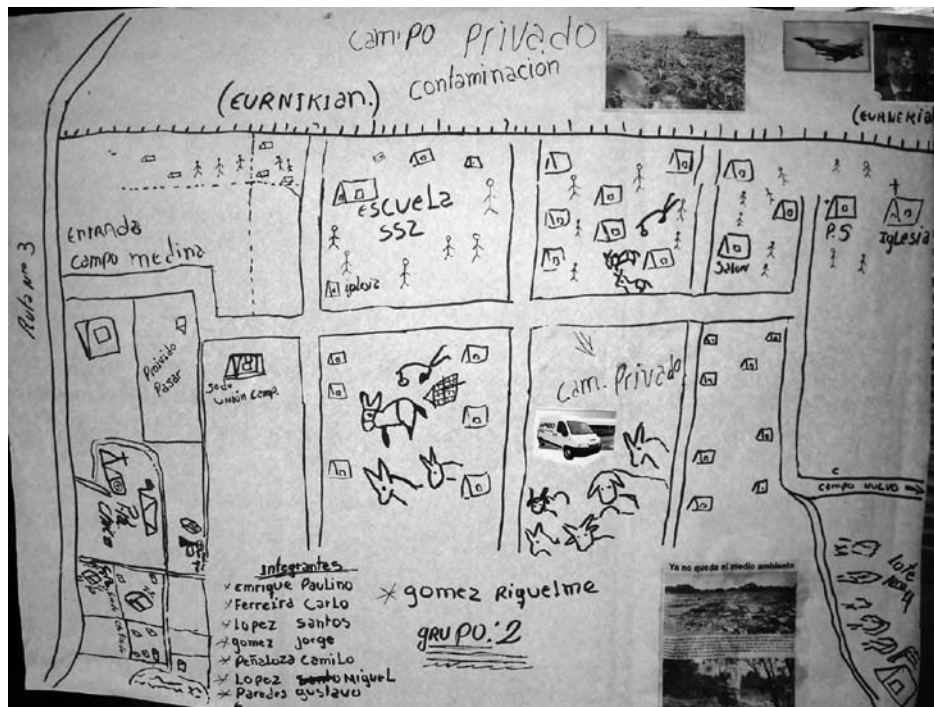 camPO Privado
contaminacion
(EURNIKIan.)
(EURNEKIa
Ruta Nro 3
EntRada
campo medina
EscueLa
552
iglesia
Salon
P.S
Iglesia
Proivido
Pasar
Sede
UNION Camp.
cam. Privado
campo NUEVO
Lote
Integrantes
* Emrique Paulino
* Ferreira Carlo
* Lopez Santos
* gomez Jorge
* Peñaloza CamiLo
* Lopez Miguel
* Paredes gustavo
* gomez Riquelme
gRUPO: 2
Ya no queda ni medio ambiente